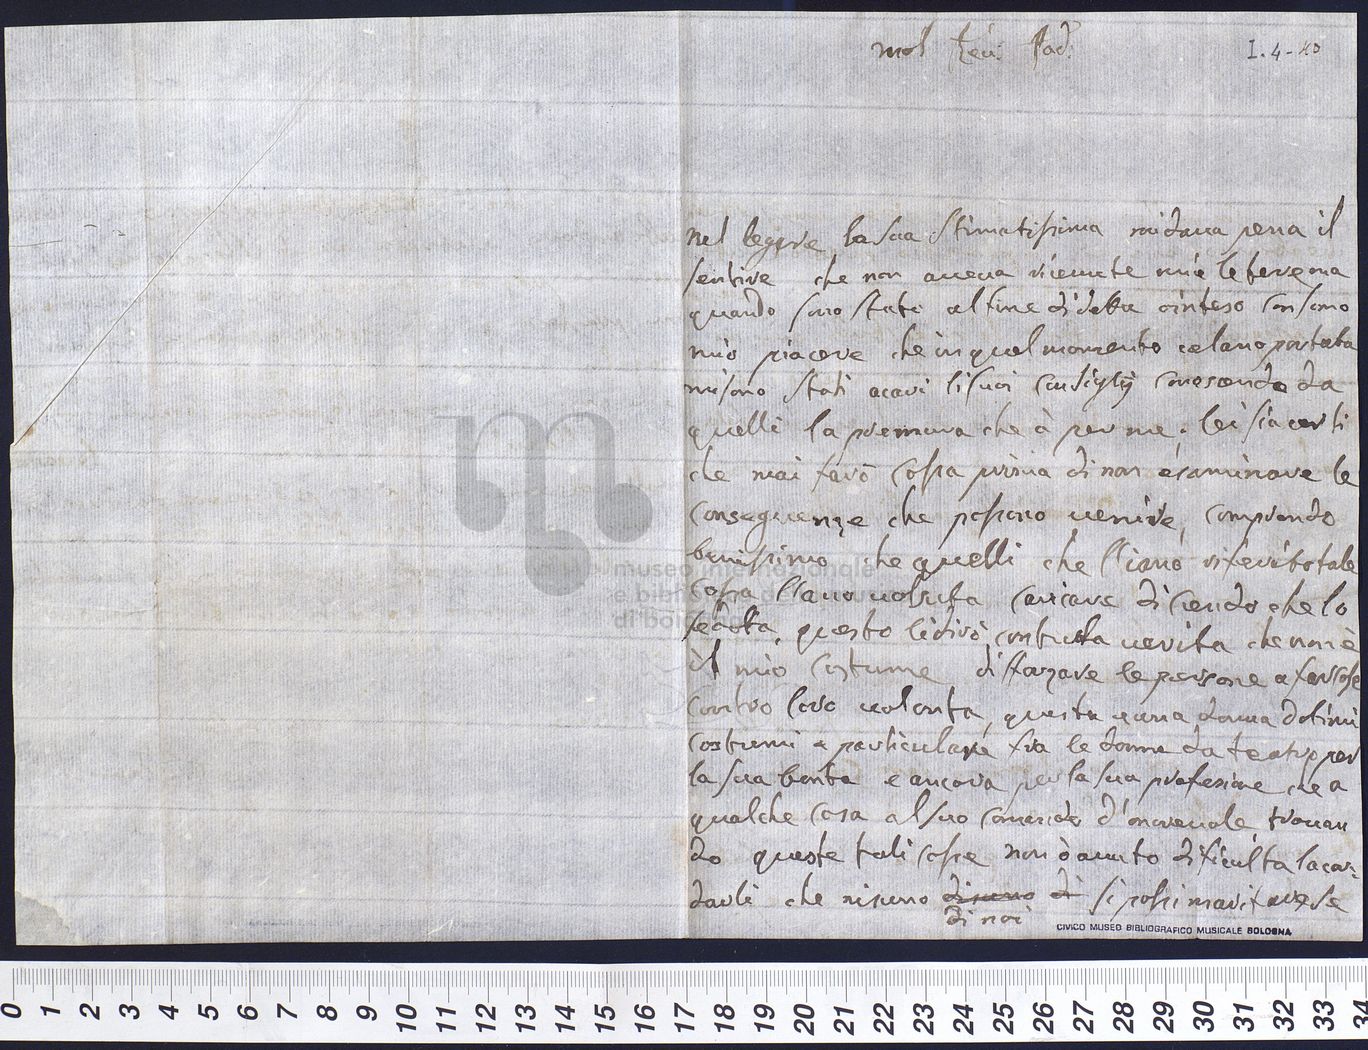 mol Reu: Pad:
I. 4-40
nel leggere la sua stimatissima mi daua pena il
sentire che non aueua riceuute mie letere ma
quando sono stato al fine di detta ò inteso con somo
mio piacere che in quel momento celano portata
mi sono stati acari li suoi Consigly Conoscendo da
quelli la premura che à per me, lei sia certi
che mai farò Cossa prima di non esaminare le
Conseguenze che possono uenire, Comprendo
benissimo che quelli che l'iano riferito tale
Cossa l'ano uolsuta Caricare dicendo che lo
sedotta, questo li dirò con tutta uerita che non è
il mio Costume di sforzare le persone a far Cose
Contro loro uolonta, questa è una donna dotimi
Costumi e particulare fra le donne da teatro per
la sua bonta e ancora per la sua profesione che a
qualche Cosa al suo Comando d'onoreuole, trouan
do queste tali Cosse non ò auuto dificulta lacor:
darli che nisuno disuno di si possi maritarsi se
di noi
museo internazionale
e biblioteca della musica
di bologna
CIVICO MUSEO BIBLIOGRAFICO MUSICALE BOLOGNA
0 1 2 3 4 5 6 7 8 9 10 11 12 13 14 15 16 17 18 19 20 21 22 23 24 25 26 27 28 29 30 31 32 33 34